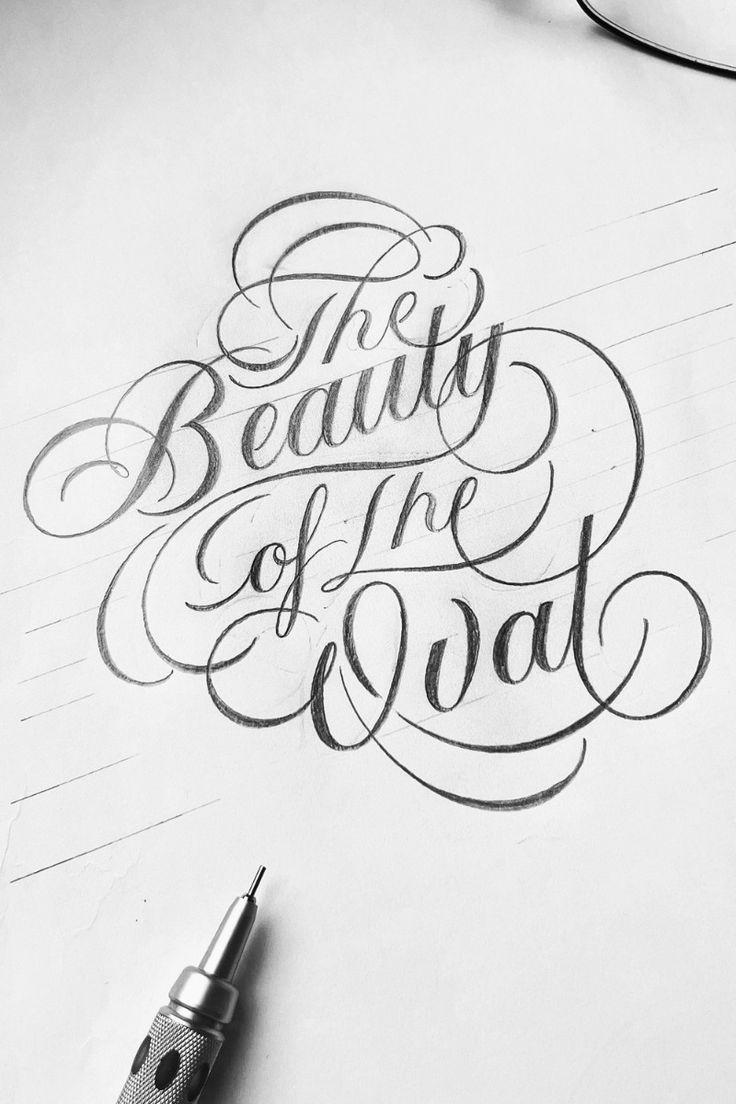 The
Beauty
of the
Oval